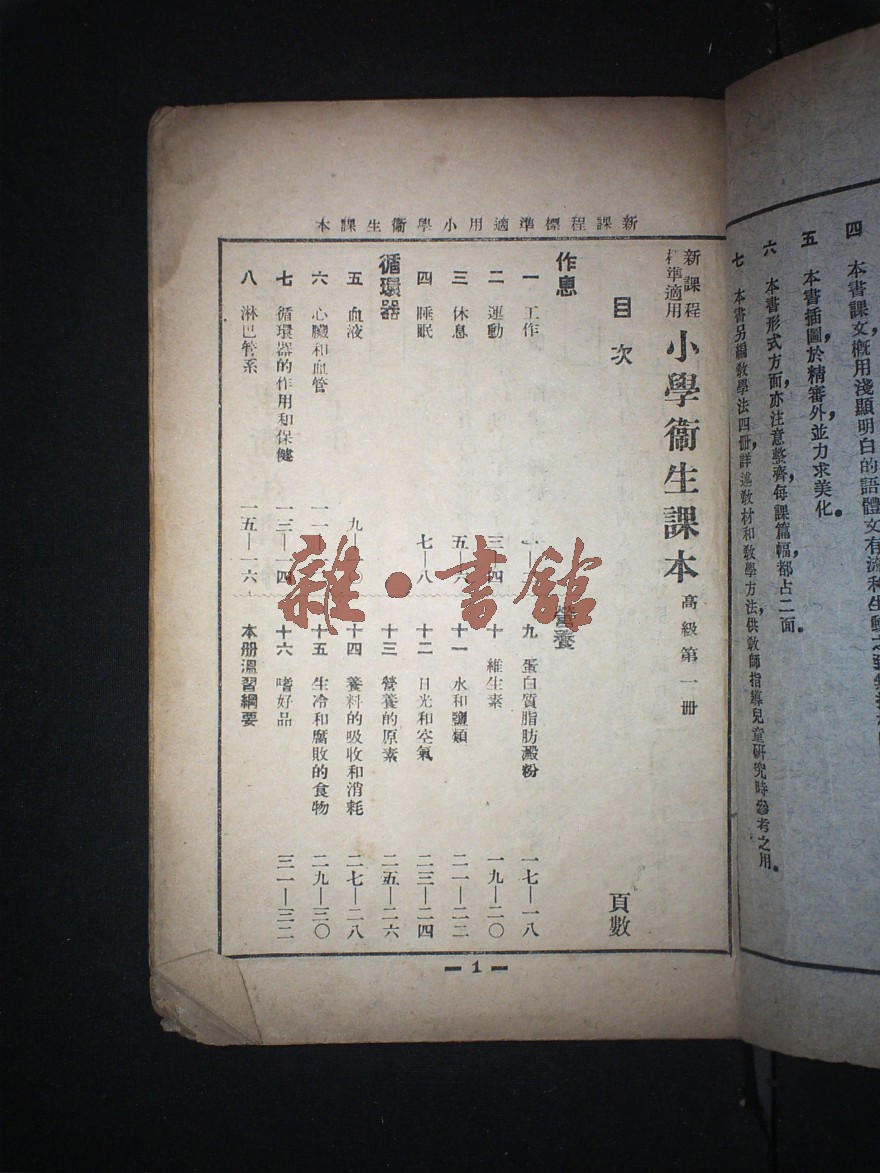 四 本書課文，概用淺顯明白的語體文有流利生動之
五 本書插圖，於精審外並力求美化。
六 本書形式方面，亦注意整齊，每課篇幅，都占二面。
七 本書另編教學法四冊，詳述教材和教學方法，供教師指導兒童研究時參考之用。
新課程標準適用小學衞生課本
新課程標準適用 小學衞生課本 高級第一册
目次 頁數
作息
一 工作 一—
二 運動 三—四
三 休息 五—六
四 睡眠 七—八
循環器
五 血液 九—一〇
六 心臟和血管 一一—
七 循環器的作用和保健 一三—一四
八 淋巴管系 一五—一六
營養
九 蛋白質脂肪澱粉 一七—一八
十 維生素 一九—二〇
十一 水和鹽類 二一—二二
十二 日光和空氣 二三—二四
十三 營養的原素 二五—二六
十四 養料的吸收和消耗 二七—二八
十五 生冷和腐敗的食物 二九—三〇
十六 嗜好品 三一—三二
本册溫習綱要
1
雜·書館